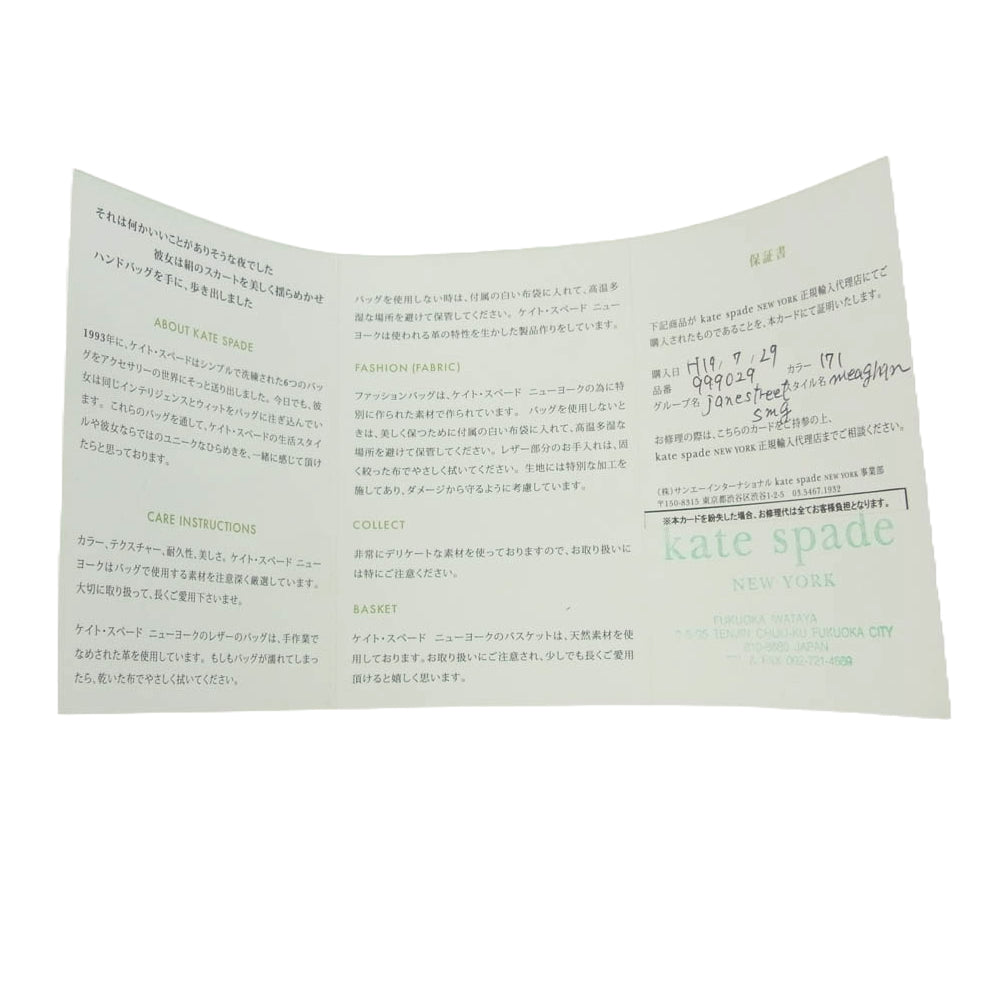 それは何かいいことがありそうな夜でした
彼女は絹のスカートを美しく揺らめかせ
ハンドバッグを手に、歩き出しました
ABOUT KATE SPADE
1993年に、ケイト・スペードはシンプルで洗練された6つのバッ
グをアクセサリーの世界にそっと送り出しました。今日でも、彼
女は同じインテリジェンスとウィットをバッグに注ぎ込んでい
ます。これらのバッグを通して、ケイト・スペードの生活スタイ
ルや彼女ならではのユニークなひらめきを、一緒に感じて頂け
たらと思っております。
CARE INSTRUCTIONS
カラー、テクスチャー、耐久性、美しさ。ケイト・スペード ニュー
ヨークはバッグで使用する素材を注意深く厳選しています。
大切に取り扱って、長くご愛用下さいませ。
ケイト・スペード ニューヨークのレザーのバッグは、手作業で
なめされた革を使用しています。もしもバッグが濡れてしまっ
たら、乾いた布でやさしく拭いてください。
バッグを使用しない時は、付属の白い布袋に入れて、高温多
湿な場所を避けて保管してください。ケイト・スペード ニュー
ヨークは使われる革の特性を生かした製品作りをしています。
FASHION (FABRIC)
ファッションバッグは、ケイト・スペード ニューヨークの為に特
別に作られた素材で作られています。 バッグを使用しないと
きは、美しく保つために付属の白い布袋に入れて、高温多湿な
場所を避けて保管してください。レザー部分のお手入れは、固
く絞った布でやさしく拭いてください。生地には特別な加工を
施してあり、ダメージから守るように考慮しています。
COLLECT
非常にデリケートな素材を使っておりますので、お取り扱いに
は特にご注意ください。
BASKET
ケイト・スペード ニューヨークのバスケットは、天然素材を使
用しております。お取り扱いにご注意され、少しでも長くご愛用
頂けると嬉しく思います。
保証書
下記商品が kate spade NEW YORK 正規輸入代理店にてご
購入されたものであることを、本カードにて証明いたします。
購入日 H19, 7, 29
品番 999029 カラー 171
グループ名 janestreet スタイル名 meaghan
smg
お修理の際は、こちらのカードをご持参の上、
kate spade NEW YORK 正規輸入代理店までご相談ください。
(株)サンエーインターナショナル kate spade NEW YORK 事業部
〒150-8315 東京都渋谷区渋谷1-2-5 03.5467.1932
※本カードを紛失した場合、お修理代は全てお客様負担となります。
kate spade
NEW YORK
FUKUOKA IWATAYA
TENJIN CHUO-KU FUKUOKA CITY
810-8680 JAPAN
& FAX 092-721-4689